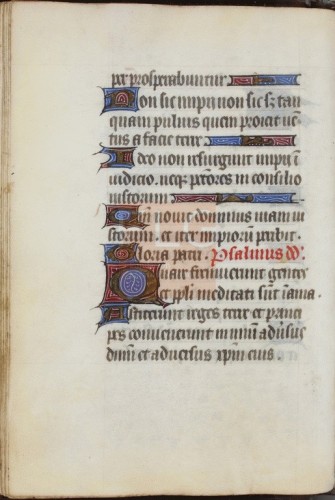 pet prosperabuntur
Non sic impii non sic sz tan
quam puluis quem proicit ue
tus a facie terre
Ideo non resurgunt impii i
iudicio. neqz pctores in consilio
iustorum
Qm nouit dominus uiam iu
storum. et iter impiorum peribit.
Gloria patri. Psalmus dd
Quare fremuerunt gentes
et ppli meditati sunt inania.
Astiterunt reges terre et princi
pes conuenerunt in unum aduersus
dnm et aduersus xpm eius.